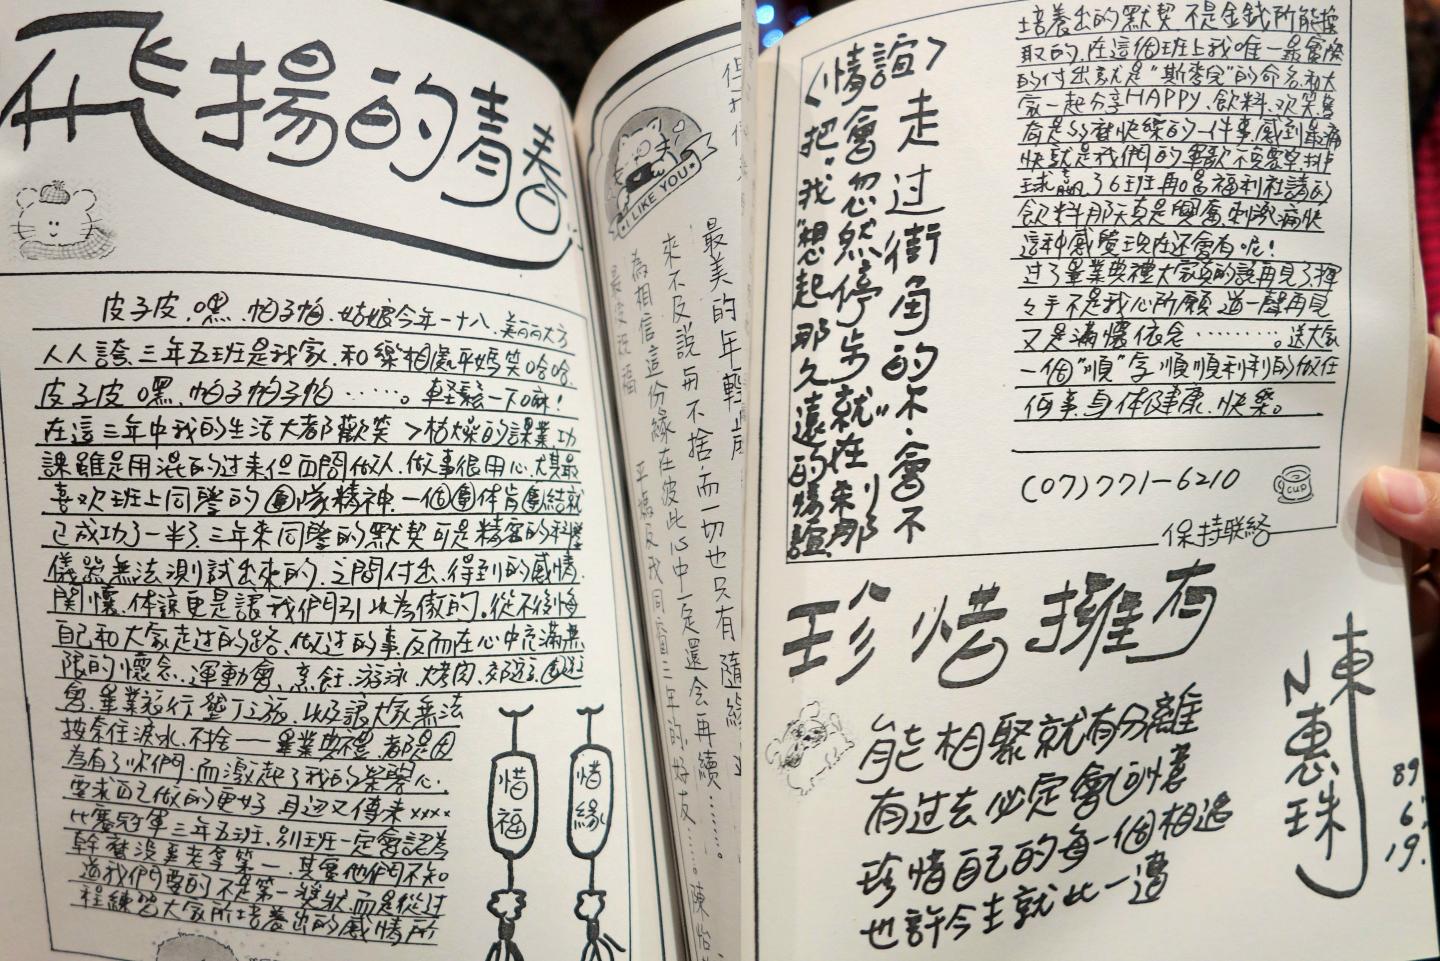 飛揚的青春
皮子皮.嘿.帕子帕.姑娘今年一十八.美而大方
人人誇.三年五班是我家.和樂相處平媽笑哈哈.
皮子皮嘿.帕子帕子帕……。輕鬆一下嘛!
在這三年中我的生活大都歡笑>枯燥的課業.功
課雖是用混的过来但面問做人.做事很用心.尤其最
喜欢班上同學的團隊精神.一個團体肯團結就
已成功了一半了.三年來同學的默契可是精密的科學
儀器無法測試出來的.之間付出.得到的感情.
關懷.体諒更是讓我們引以為傲的。從不後悔
自己和大家走过的路.做过的事.反而在心中充滿無
限的懷念.運動會.烹飪.游泳.烤肉.郊遊.園遊
會.畢業旅行墾丁之旅.以及讓大家無法
按奈住淚水.不捨——畢業典禮.都是因
為有了你們.而激起了我的榮譽心.
要求自己做的更好.身边又傳來××××
比賽冠軍三年五班.別班一定會認為
幹麼沒事老拿第一.其實他們不知
道我們要的不是第一獎狀.而是從过
程練習大家所培養出的感情所
惜福
惜緣
I LIKE YOU
最美的年輕歲
來不及說再不捨而一切也只有隨緣
為相信這份緣在彼此心中一定還会再續……。
最後祝福 平媽及我同窗三年的好友……。陳怡
〈情誼〉
走过街角的你.會不
會忽然停步.就在剎那
把"我"想起那久遠的情誼
培養出的默契.不是金錢所能換
取的.在這個班上我唯一最富幣
的付出就是"斯麥兒"的命名.和大
家一起分享HAPPY.飲料.欢笑.
快就是我們的軍歌不
球.贏了6班再喝福利社請的
飲料那天真是興奮.刺激.痛快
這种感覺現在还會有呢!
过了畢業典禮大家真的說再見了.揮
々手不是我心所願.道一聲再見
又是滿懷依念………。送大家
一個"順"字.順順利利的做任
何事.身体健康.快樂。
(07)771-6210
CUP
保持联絡
珍惜擁有
能相聚就有分離
有过去必定會回憶
珍惜自己的每一個相逢
也許今生就此一遭
陳惠珠
89
6.
19.